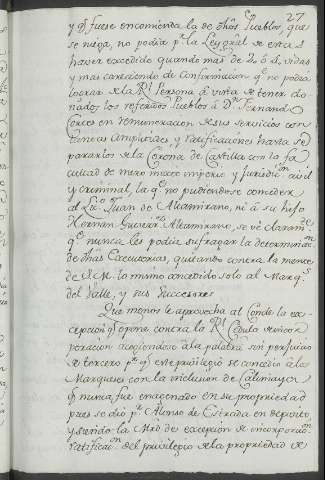 27
y q.e fuese encomienda la de dhos Pueblos, que
se niega, no podia p.r la Ley
haver excedido quando mas de 2. ó 3. vidas
y mas careciendo de Confirmacion q.e no podia
lograr de la R.l Persona á vista de tener do-
nados los referidos Pueblos á D.n Fernando
Cortes en remuneracion de sus servicios con
tantas Amplitudes, y ratificaciones hasta se-
pararlos de la Corona de Castilla con la fa-
cultad de mero mixto imperio y Jurisdic.on civil
y criminal, la q.e no pudiendose conceder
al Lic.do Juan de Altamirano, ni á su hijo
Hernan Gutierr.z Altamirano, se vé claram.te
q.e nunca les podia sufragar la determinac.on
de dhas Executorias, quitando contra la mente
de S.M. lo mismo concedido solo al Marq.s
del Valle, y sus Successores.
Que menos le aprovecha al Conde la ex-
cepcion q.e opone contra la R.l Cedula de incor-
poracion acogiendose á la palabra sin perjuicio
de tercero p.r q.e este privilegio se concedio á la
Marquesa con la inclusion de Calimaya en
q.e nunca fue enagenado en su propriedad
pues se dió p.r Alonso de Estrada en deposito,
y siendo la Mrd de excepcion de incorporac.on
ratificac.on del privilegio de la propriedad de